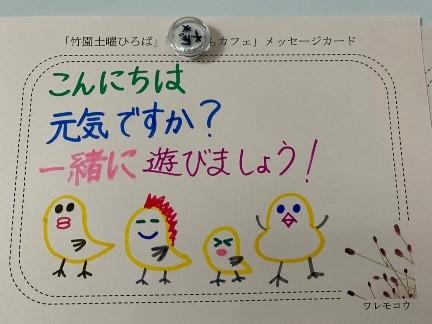 「竹園土曜ひろば」 もカフェ」メッセージカード
こんにちは
元気ですか？
一緒に遊びましょう！
ワレモコウ